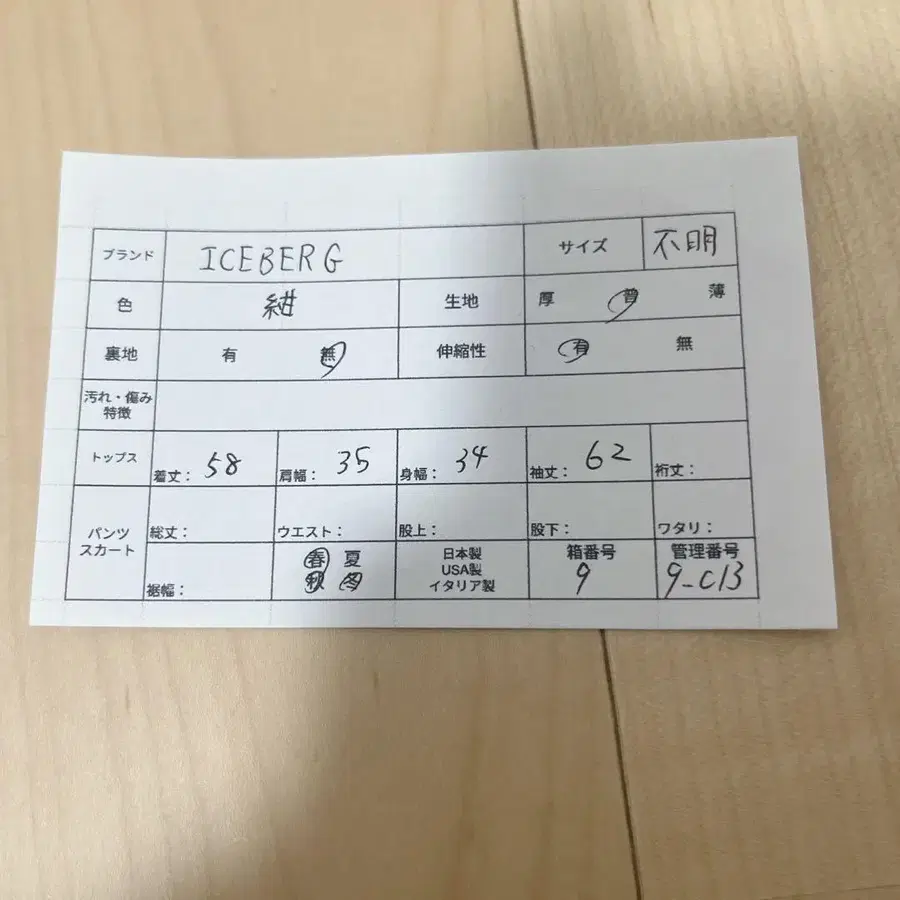 ブランド ICEBERG サイズ 不明
色 紺 生地 厚 普 薄
裏地 有 無 伸縮性 有 無
汚れ・傷み
特徴
トップス 着丈: 58 肩幅: 35 身幅: 34 袖丈: 62 裄丈:
パンツ
スカート
総丈: ウエスト: 股上: 股下: ワタリ:
裾幅:
春 夏
秋 冬
日本製
USA製
イタリア製
箱番号
9
管理番号
9-C13